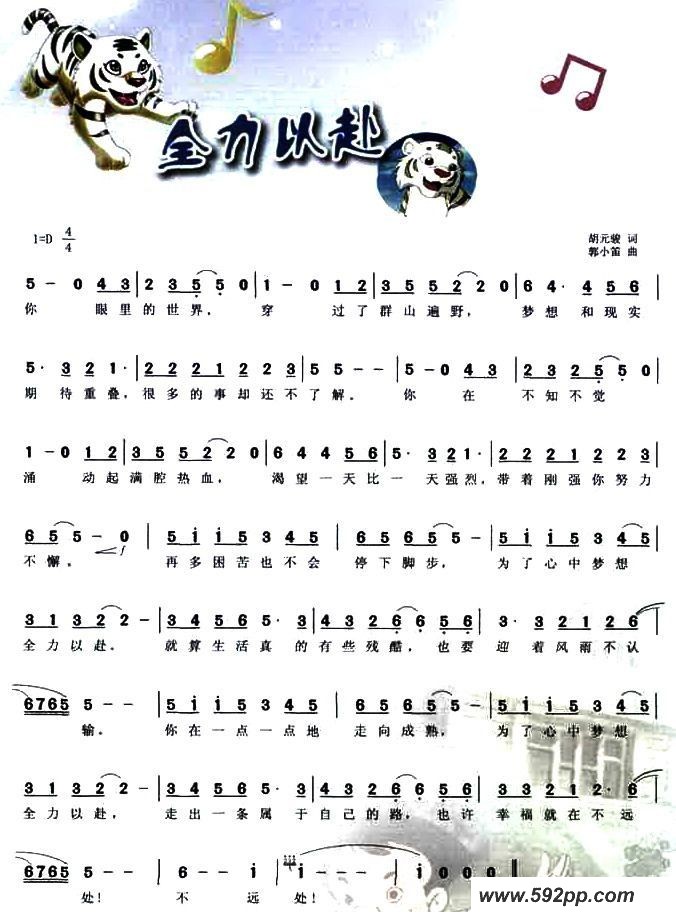 全力以赴
1=D 4/4
胡元骏 词
郭小笛 曲
5 - 0 4 3 | 2 3 5 5 0 | 1 - 0 1 2 | 3 5 5 2 2 0 | 6 4 · 4 5 6 |
你 眼里的世界, 穿 过了群山遍野, 梦想 和现实
5 · 3 2 1 · | 2 2 2 1 2 2 3 | 5 5 - - | 5 - 0 4 3 | 2 3 2 5 5 0 |
期 待重叠, 很多的事却还不了解。 你 在 不知不觉
1 - 0 1 2 | 3 5 5 2 2 0 | 6 4 4 4 5 6 | 5 · 3 2 1 · | 2 2 2 1 2 2 3 |
涌 动起满腔热血, 渴望一天比一天强烈, 带着刚强你努力
6 5 5 - 0 | 5 i i 5 3 4 5 | 6 5 6 5 5 - | 5 i i 5 3 4 5 |
不懈。 f 再多困苦也不会 停下脚步, 为了心中梦想
3 1 3 2 2 - | 3 4 5 6 5 · 3 | 3 4 3 2 6 6 5 6 | 3 · 3 2 1 2 6 |
全力以赴。 就算生活真的有些残酷, 也要 迎着风雨不认
6765 5 - - | 5 i i 5 3 4 5 | 6 5 6 5 5 - | 5 i i 5 3 4 5 |
输。 你在一点一点地 走向成熟, 为了心中梦想
3 1 3 2 2 - | 3 4 5 6 5 · 3 | 3 4 3 2 6 6 5 6 | 3 · 3 2 1 2 6 |
全力以赴, 走出一条属于自己的路, 也许 幸福就在不远
6765 5 - - | 6 - - i | i - - - | i 0 0 0 ‖
处! 不 远 处!
www.592pp.com